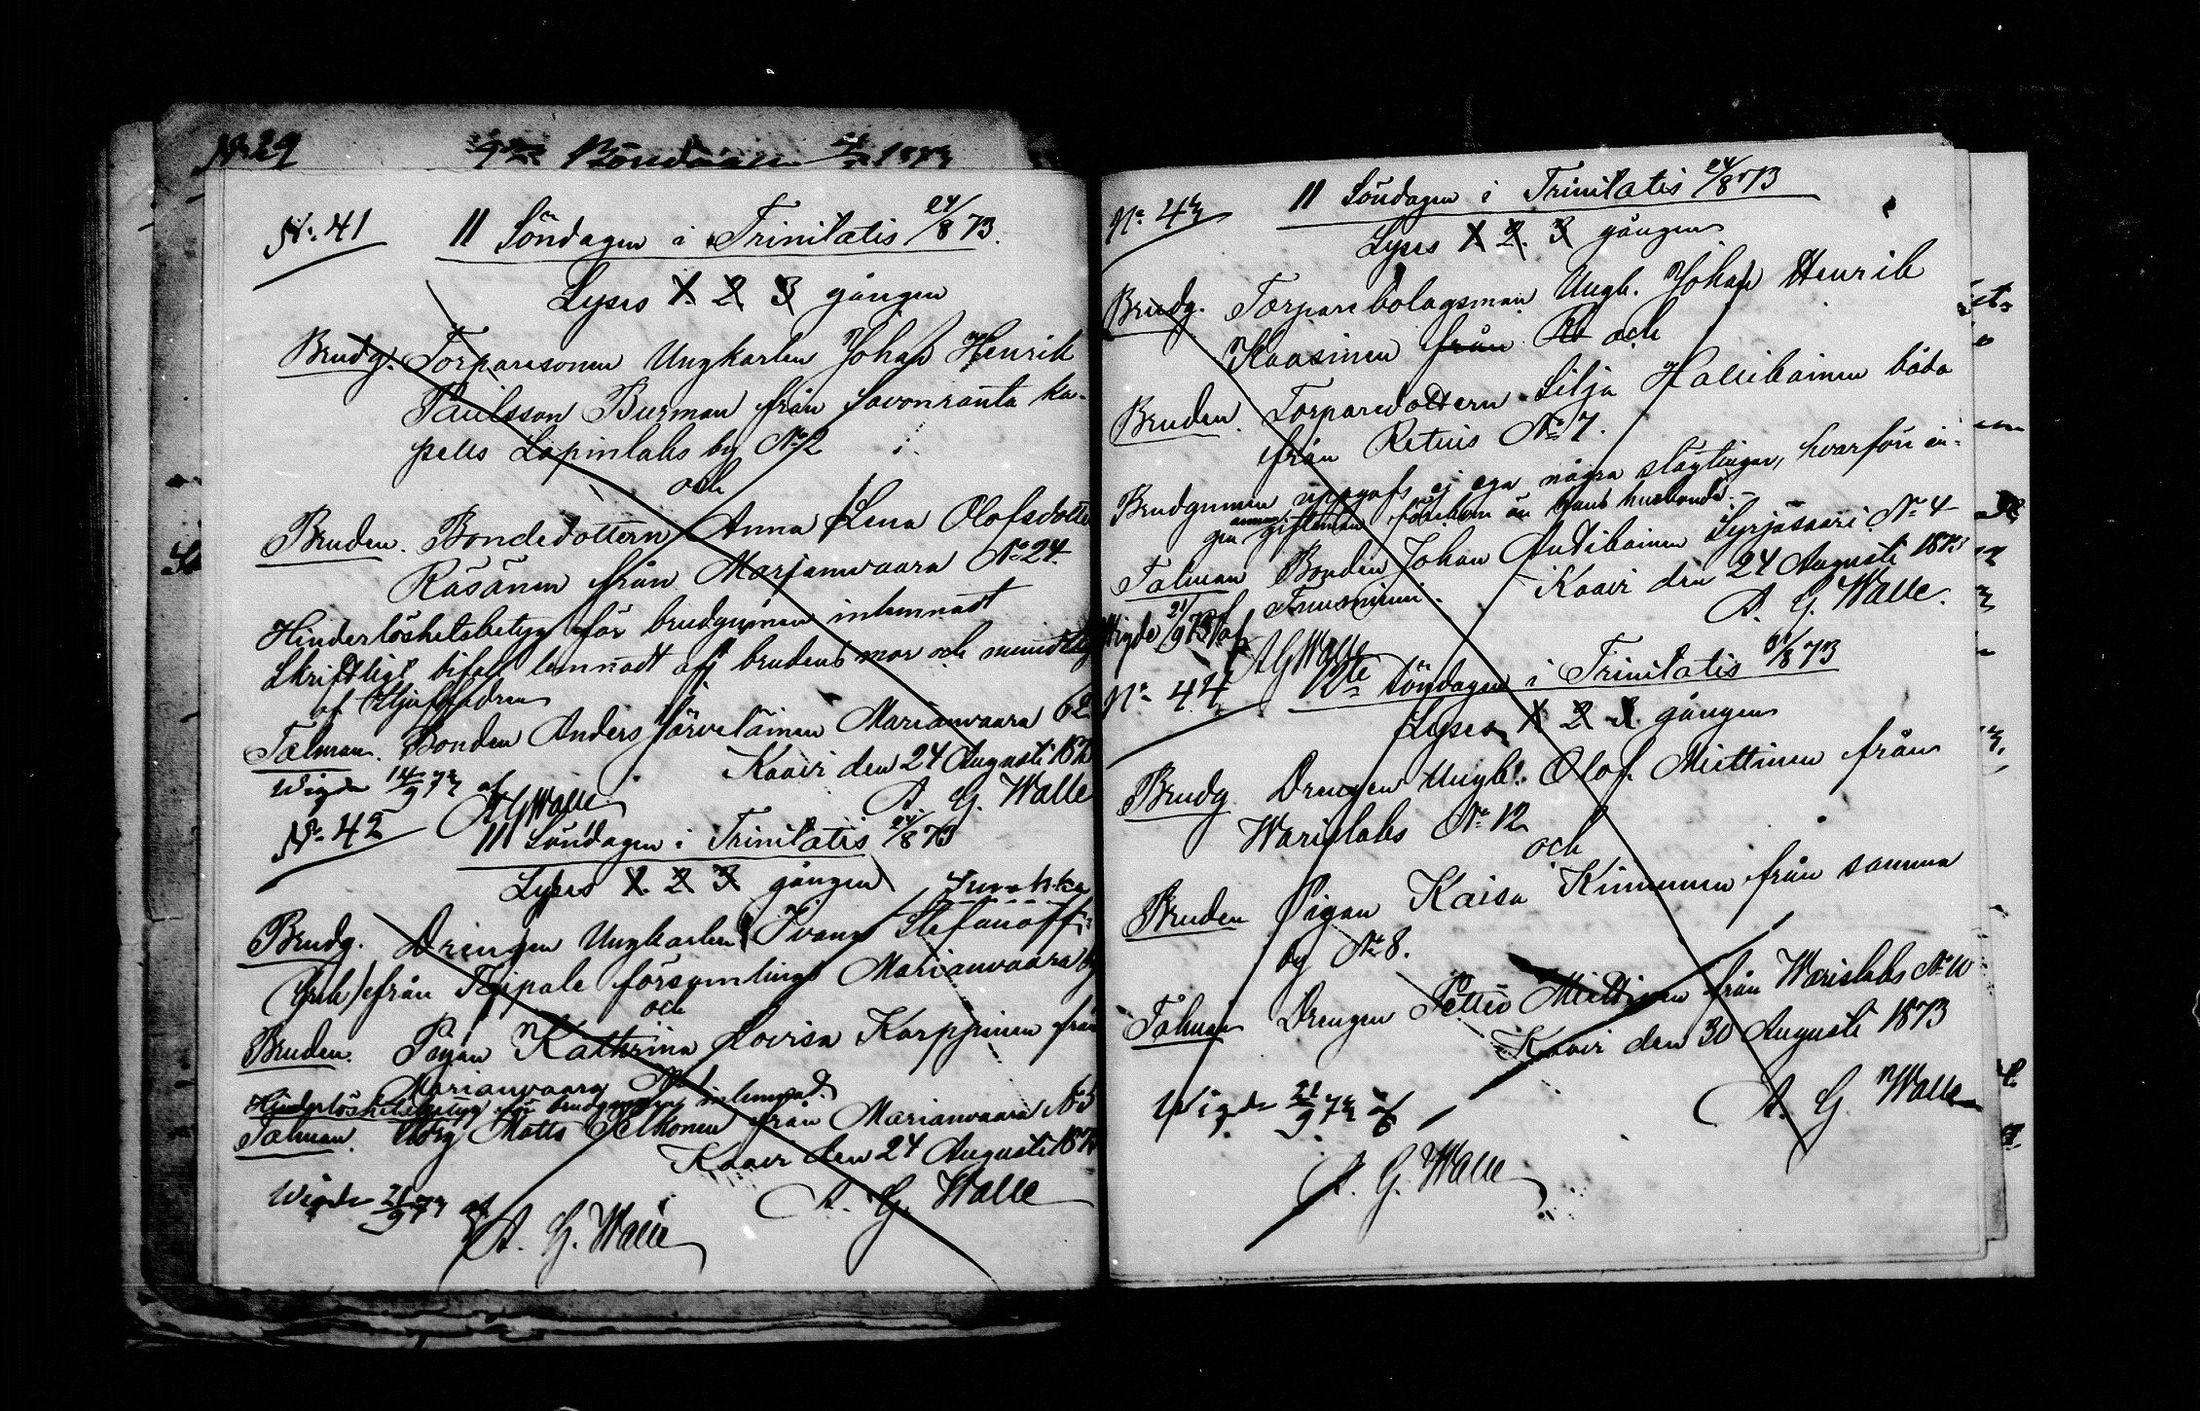 No 29 9de Böndagen 1873
No. 41 11 Söndagen i Trinitatis 24/8 73.
Lyses 1. 2. 3 gången
Brudg. Torparesonen Ungkarlen Johan Henrik
Paulsson Burman från Savonranta ka-
pells Lapinlaks by No 2
och
Bruden. Bondedottern Anna Lena Olofsdotter
Räsänen från Marianvaara No 24.
Hinderlöshetsbetyg för brudgumen inlemnadt
Skriftligt bifall lemnadt af brudens mor och mundtlig
af Stjuffadren
Talman. Bonden Anders Järveläinen Marianvaara 62
Kaavi den 24 Augusti 187
Wigde 14/9 73 af
A G Walle
A. G. Walle
No. 42 11 Söndagen i Trinitatis 24/8 73
Lyses 1. 2. 3 gången
Brudg. Drengen Ungkarlen Ivan Stefanoff
från Taipale församlings Marianvaara by
och
Bruden. Pigan Kathrina Lovisa Karppinen från
Marianvaara No 1
Hinderlöshetsbetyg för brudgumen inlemnad.
Talman. Matts Pelkonen från Marianvaara No 5
Kaavi den 24 Augusti 187
Wigde 21/9 73 af
A. G. Walle
A. G. Walle
No. 43 11 Söndagen i Trinitatis 24/8 73
Lyses 1 2. 3 gången
Brudg. Torparebolagsman Ungk. Johan Henrik
Kaasinen från och
Bruden. Torparedottern Silja Hallikainen båda
från Retuis No 7.
Brudgumen uppgafs ej ega några slägtingar, hvarföre in-
gen annan giftoman förekom än hans husbonde.
Talman Bonden Johan Antikainen Syrjäsaari No 4
Kaavi den 24 Augusti 1873
A. G. Walle.
Wigde 21/9 73 af
A G Walle
No. 44 12te Söndagen i Trinitatis 31/8 73
Lyses 1 2 3 gången
Brudg Drengen Ungk. Olof Miettinen från
Warislaks No 12
och
Bruden Pigan Kaisa Kinnunen från samma
by No 8.
Talman Drengen Petter Miettinen från Warislaks No 10
Kaavi den 30 Augusti 1873
A. G. Walle
Wigde 21/9 73 af
A. G. Walle